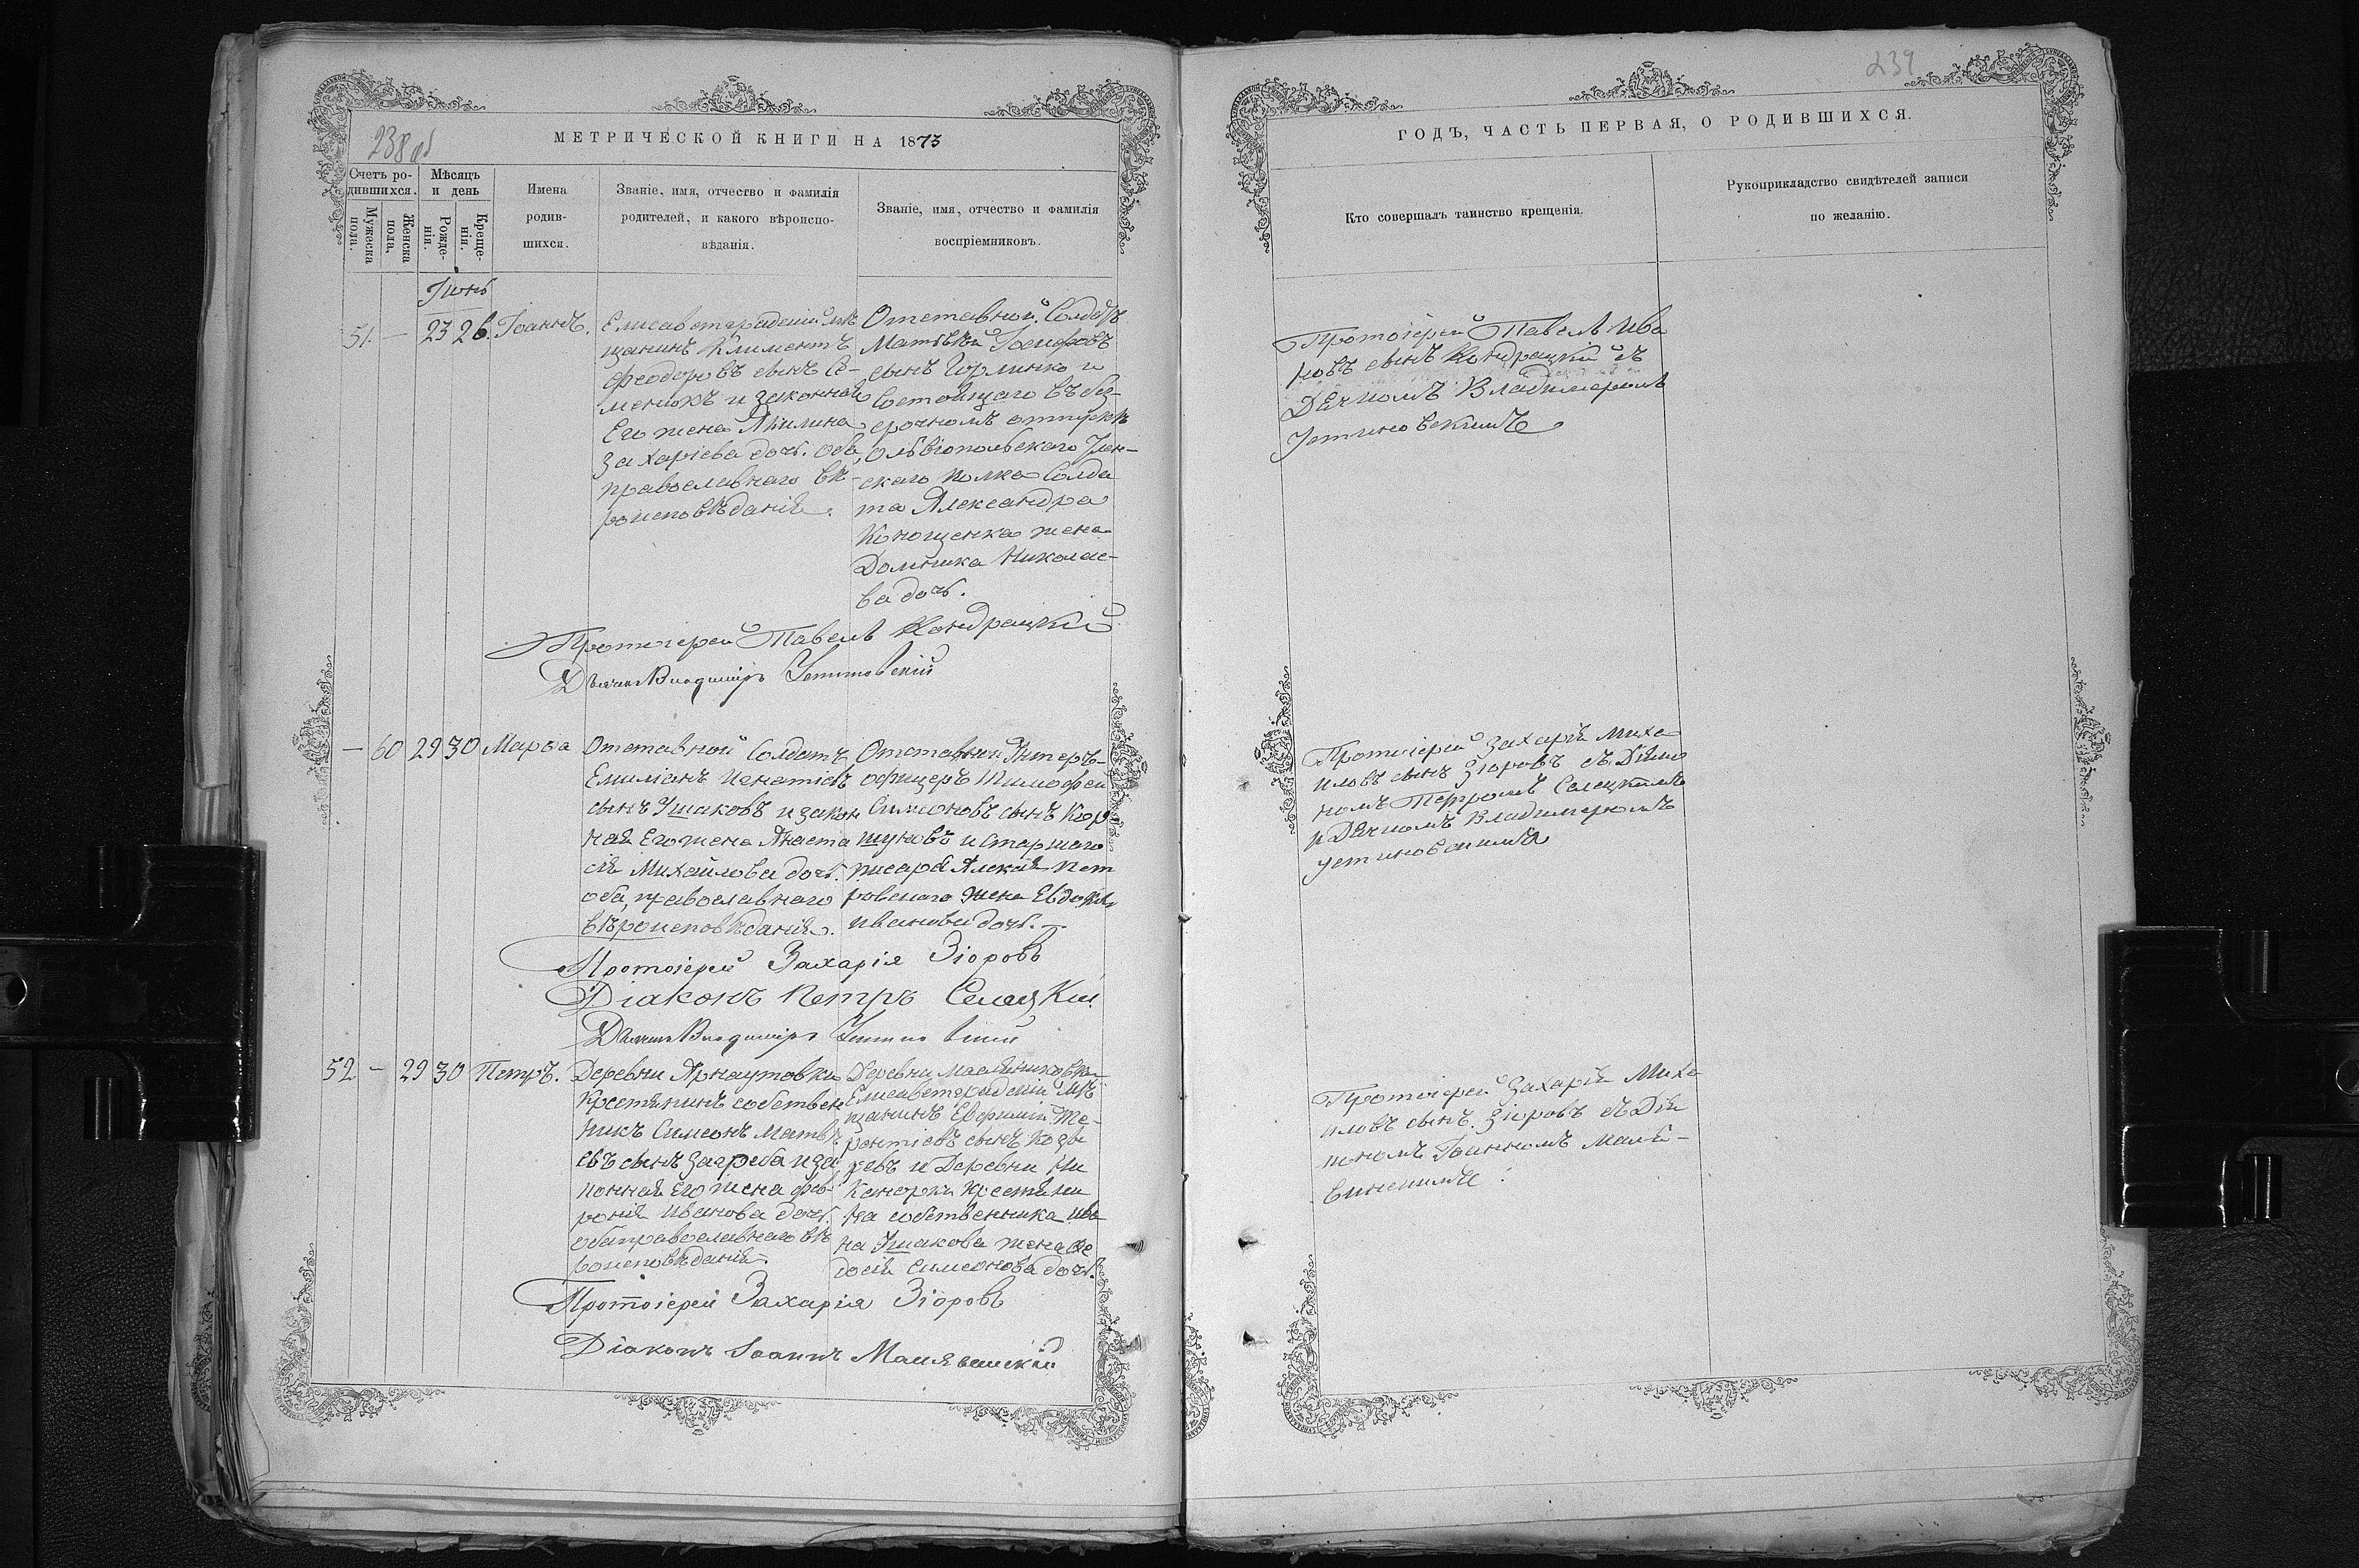 238 об
МЕТРИЧЕСКОЙ КНИГИ НА 1873
Счетъ ро-
дившихся.
Мужеска
пола.
Женска
пола.
Мѣсяцъ
и день
Рожде-
нія.
Креще-
нія.
Имена
родив-
шихся.
Званіе, имя, отчество и фамилія
родителей, и какого вѣроиспо-
вѣданія.
Званіе, имя, отчество и фамилія
воспріемниковъ.
Іюнь
51. — 23 26. Іоаннъ.
Елисаветградскій мѣ
щанинъ Климентъ
Феодоровъ сынъ Се-
менюкъ и законная
Его жена Акилина
Захаріева дочь. оба,
православнаго вѣ-
роисповѣданія.
Отставной Солдатъ
Матѣвѣй Іосифовъ
сынъ Горлинко и
Состоящаго въ без-
срочномъ отпуску
Ольвіопольскаго Улан-
скаго полка Солда
та Александра
Конощенка жена
Домника Николае-
ва дочь.
Протоіерей Павелъ Кондрацкій
Дьячекъ Владиміръ Устиновскій
— 60 29 30 Марѳа
Отставной Солдатъ
Емиліанъ Игнатіевъ
сынъ Ушаковъ и закон
ная Его жена Анаста
сія Михайлова дочь.
оба, православнаго
вѣроисповѣданія.
Отставной Унтеръ-
офицеръ Тимофей
Симеоновъ сынъ Кор
шуновъ и старшаго
писаря Алексія Пет
ровскаго жена Евдокія
Иванова дочь.
Протоіерей Захарія Зіоровъ
Діаконъ Петръ Селецкій
Дьячекъ Владиміръ Устиновскій
52 — 29 30 Петръ.
Деревни Арнаутовки
Крестянинъ собствен
никъ Симеонъ Матвѣ
евъ сынъ Загреба и за
конная Его жена Фев-
ронія Иванова дочь.
оба православнаго вѣ
роисповѣданія.
Деревни Масляниковки
Елисаветградскій мѣ
щанинъ Евфимій Те-
рентіевъ сынъ Козы
ревъ и Деревни Ни
каноровки крестяни
на собственника Ива
на Ушакова жена Ѳе
досія Симеонова дочь.
Протоіерей Захарія Зіоровъ
Діаконъ Іоаннъ Малявинскій
239
ГОДЪ, ЧАСТЬ ПЕРВАЯ, О РОДИВШИХСЯ.
Кто совершалъ таинство крещенія.
Рукоприкладство свидѣтелей записи
по желанію.
Протоіерей Павелъ Ива
новъ сынъ Кондрацкій съ
Дячкомъ Владимиромъ
Устиновскимъ
Протоіерей Захарія Миха
иловъ сынъ Зіоровъ съ Діяко
номъ Петромъ Селецкимъ
и Дячкомъ Владимиромъ
Устиновскимъ
Протоіерей Захарія Миха
иловъ сынъ Зіоровъ съ Дія
кономъ Іоанномъ Маля-
винскимъ.